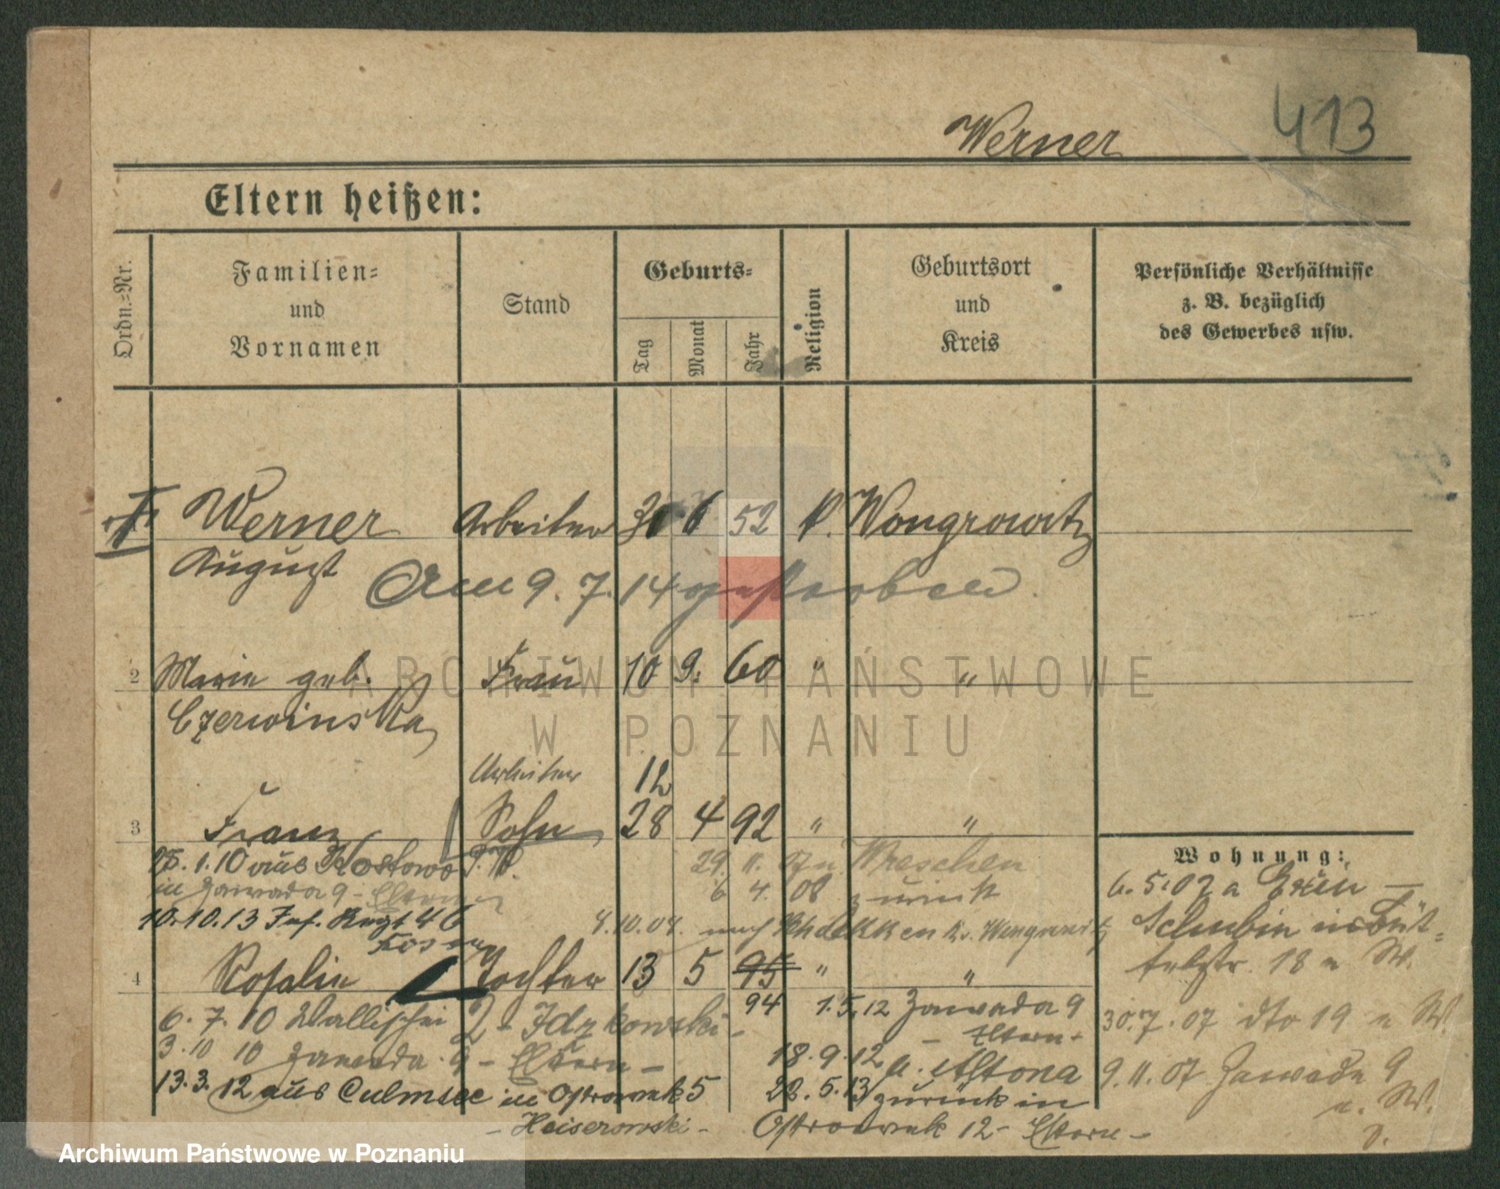 413
Werner
Eltern heißen:
Ordn.-Nr.
Familien-
und
Vornamen
Stand
Geburts-
Tag
Monat
Jahr
Religion
Geburtsort
und
Kreis
Persönliche Verhältnisse
z. B. bezüglich
des Gewerbes usw.
Werner Arbeiter 6 52 Wongrowitz
August
Am 9. 7. 14 gestorben
2 Marie geb. Frau 10 9. 60 " "
Czerwinska
Arbeiter 12
3 Franz Sohn 28 4 92 " "
Wohnung:
1.10 aus Kostowo 29. 11. Wreschen
in Zawada 9 - Eltern 6 4. 08 zurück
6. 5. 07 a
10.10.13 Inf. Regt 46 4.10.04. nach
Posen
Schubin
18 a W.
4 Rosalie Tochter 13 5 95 " "
94
6. 7. 10 Wallischei 2 - Idzkowski -
1.5.12 Zawada 9
- Eltern -
30.7.07 dto 19 a W.
3.10 10 Zawada 9 - Eltern -
18.9.12 a. Altona
9.11.07 Zawada 9
a. W.
13.3.12 aus Culmsee in Ostrowek 5
28.5.13 zurück in
- Heiserowski -
Ostrowek 12 - Eltern -
ARCHIWUM PAŃSTWOWE
W POZNANIU
Archiwum Państwowe w Poznaniu